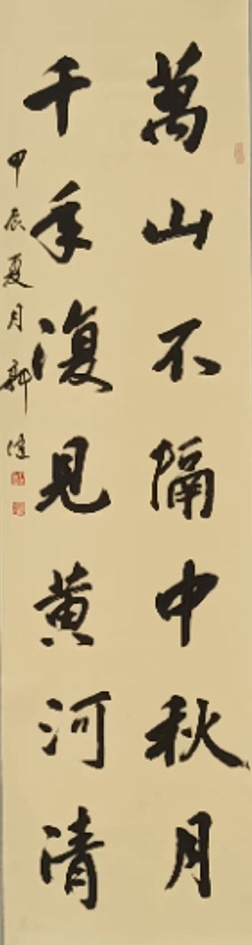 萬山不隔中秋月
千年復見黄河清
甲辰夏月郭健